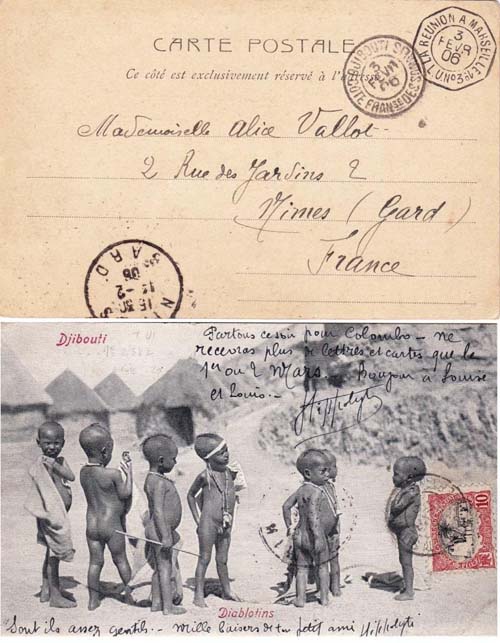 CARTE POSTALE
Ce côté est exclusivement réservé à l'adresse
DJIBOUTI
3
FEVR
LA REUNION A MARSEILLE
3
FEVR
06
Mademoiselle Alice Vallot
2 Rue des Jardins 2
Nimes (Gard)
France
GARD
Djibouti
Partons ce soir pour Colombo - ne
recevras plus de lettres et cartes que le
1er ou 2 Mars. Bonjour à Louise
et Louis.
Hippolyte
10
Diablotins
Sont ils assez gentils. - Mille baisers de ton petit ami Hippolyte